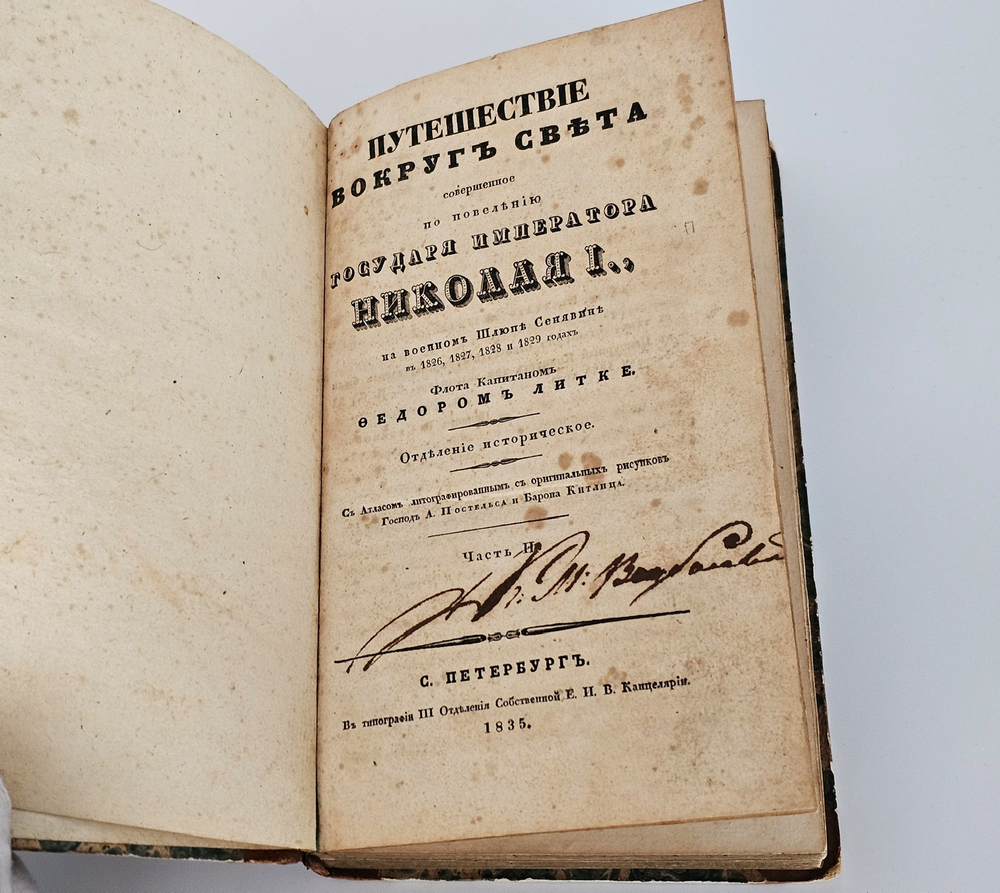 ПУТЕШЕСТВІЕ
ВОКРУГЪ СВѢТА
совершенное
по повелѣнію
ГОСУДАРЯ ИМПЕРАТОРА
НИКОЛАЯ I.,
на военномъ Шлюпѣ Сенявинѣ
въ 1826, 1827, 1828 и 1829 годахъ
Флота Капитаномъ
ѲЕДОРОМЪ ЛИТКЕ.
Отдѣленіе историческое.
Съ Атласомъ литографированнымъ съ оригинальныхъ рисунковъ
Господъ А. Постельса и Барона Китлица.
Часть II.
С. ПЕТЕРБУРГЪ.
Въ типографіи III Отдѣленія Собственной Е. И. В. Канцеляріи.
1835.